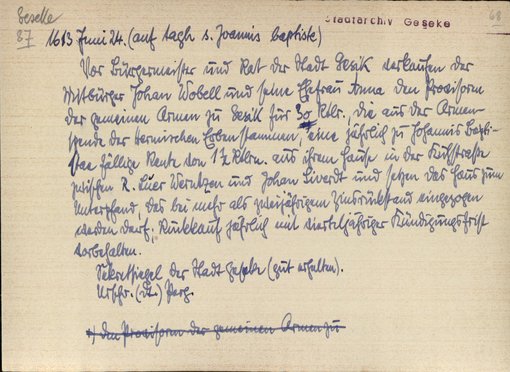 Geseke
Stadtarchiv Geseke
68
87
1613 Juni 24. (auf tagh s. Joannis baptiste)
Vor Bürgermeister und Rat der Stadt Gesik verkaufen der
Mitbürger Johan Wobell und seine Ehefrau Anna den Provisorn
der gemeinen Armen zu Gesik für 30 Rtlr., die aus der Armen-
spende der Erbenstammen, eine jährlich zu Johannis Bapti-
stae fällige Rente von 1½ Rtlrn. aus ihrem Hause in der Kuhstraße
zwischen und Johan und setzen das Haus zum
Unterpfand, das bei mehr als zweijährigem Zinsrückstand eingezogen
werden darf. Rückkauf jährlich mit vierteljähriger Kündigungsfrist
vorbehalten.
Sekretsiegel der Stadt Geseke (gut erhalten).
Urschr. (dt.) Perg.
den Provisorn der gemeinen Armen zu